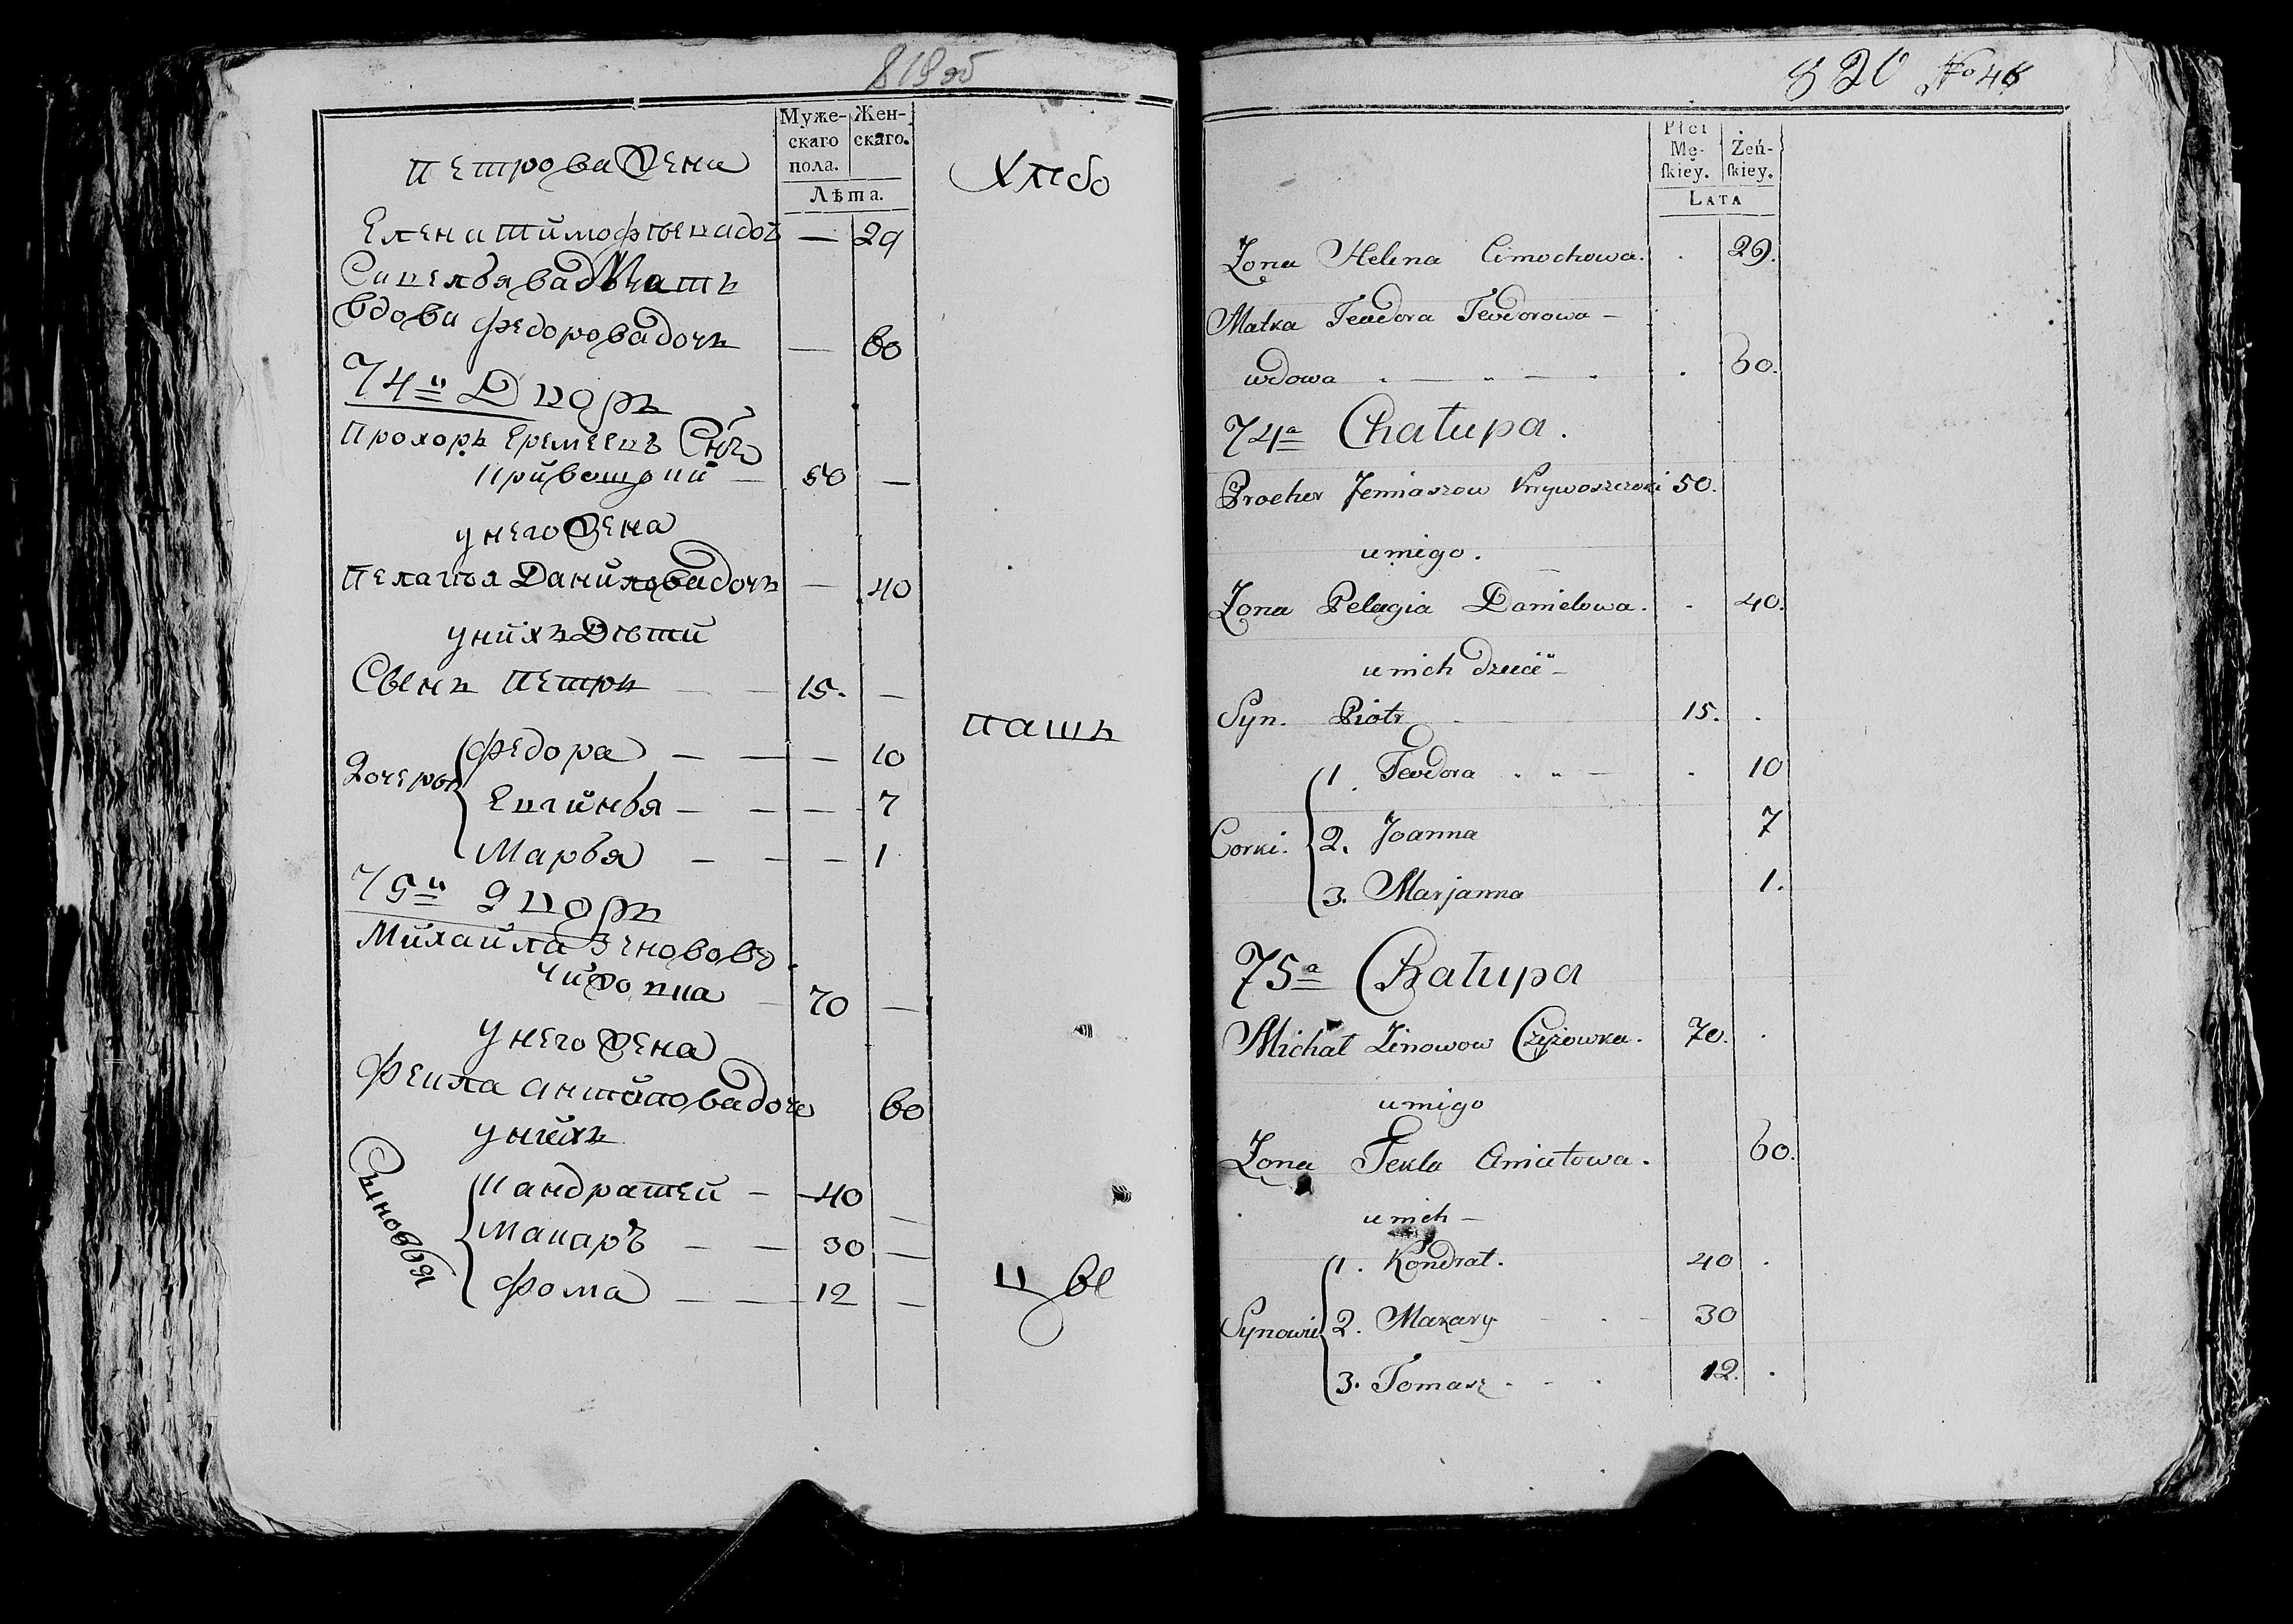 819 об
Муже-
скаго
пола.
Жен-
скаго.
Лѣта.
Петрова Жена
Хлебо
Елена Тимофѣева доч — 29
Савельява Мать
вдова Федорова дочь — 60
74й Дворъ
Прохоръ Еремеевъ Снъ
Кривошкий — 50 —
у него Жена
Пелагѣя Данилова дочь — 40
у нихъ Дѣти
Сынъ Петръ — — 15. —
пашъ
Дочеры
Федора — — — 10
Евгинья — — — 7
Марья — — — 1
75й Дворъ
Михайла Зенововъ
Чижовка — 70 —
у него Жена
Фекла Антипова доче 60
у нихъ
Сыновья
Кандратей — 40 —
Макаръ — — 30 —
Фома — — 12 —
цы
820 No 46
Płci
Mę-
skiey.
Żeń-
skiey.
LATA
Zona Helena Cimochowa. . 29.
Matka Teodora Teodorowa —
wdowa . — „ — . . 60.
74a Chałupa.
Procher Jemiaszow 50.
u niego.
Zona Pelagia Danielowa. . 40.
u nich dzieci —
Syn. Piotr 15. .
Corki.
1. Teodora . „ — . 10
2. Joanna 7
3. Marjanna 1.
75a Chałupa
Michał Zinowow Czyżowka. 70. .
u niego
Zona Tekla 60.
u nich —
Synowie
1. Kondrat. 40 .
2. Makary 30
3. Tomasz 12. .